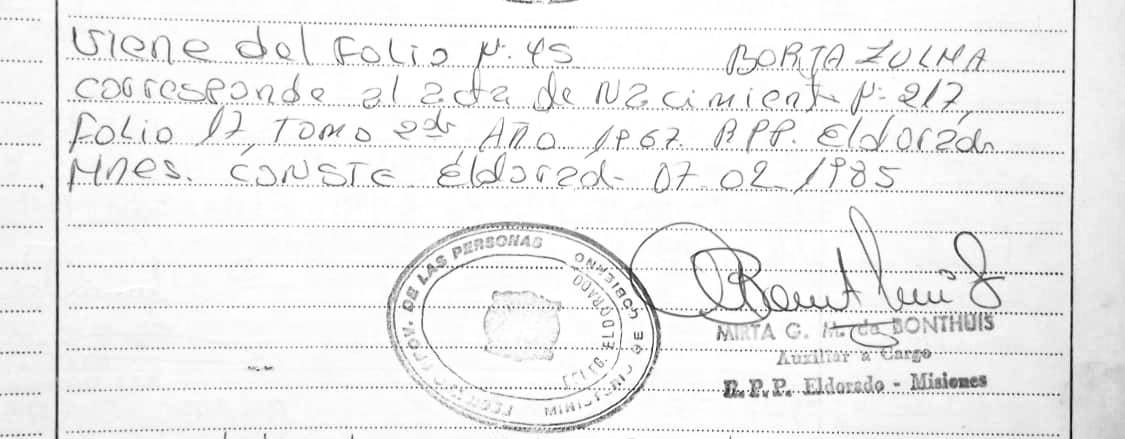 Viene del Folio Nº 45 BORJA ZULMA
corresponde al acta de Nacimiento Nº 217,
Folio 17 Tomo 2do Año 1967. RPP. Eldorado
Mnes. CONSTE. Eldorado 07.02.1985
PROV. DE LAS PERSONAS
MINISTERIO DE GOBIERNO
ELDORADO
MIRTA G. M. de BONTHUIS
Auxiliar a Cargo
R.P.P. Eldorado - Misiones